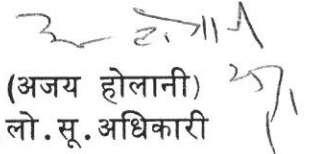 (अजय होलानी)
लो.सू.अधिकारी